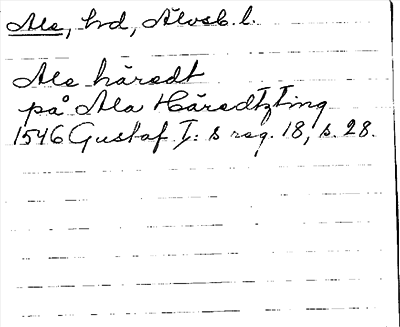 Ale, hrd, Älvsb. l.
Ale häredt
på Ala Häredtzting
1546 Gustaf I:s reg. 18, s. 28.